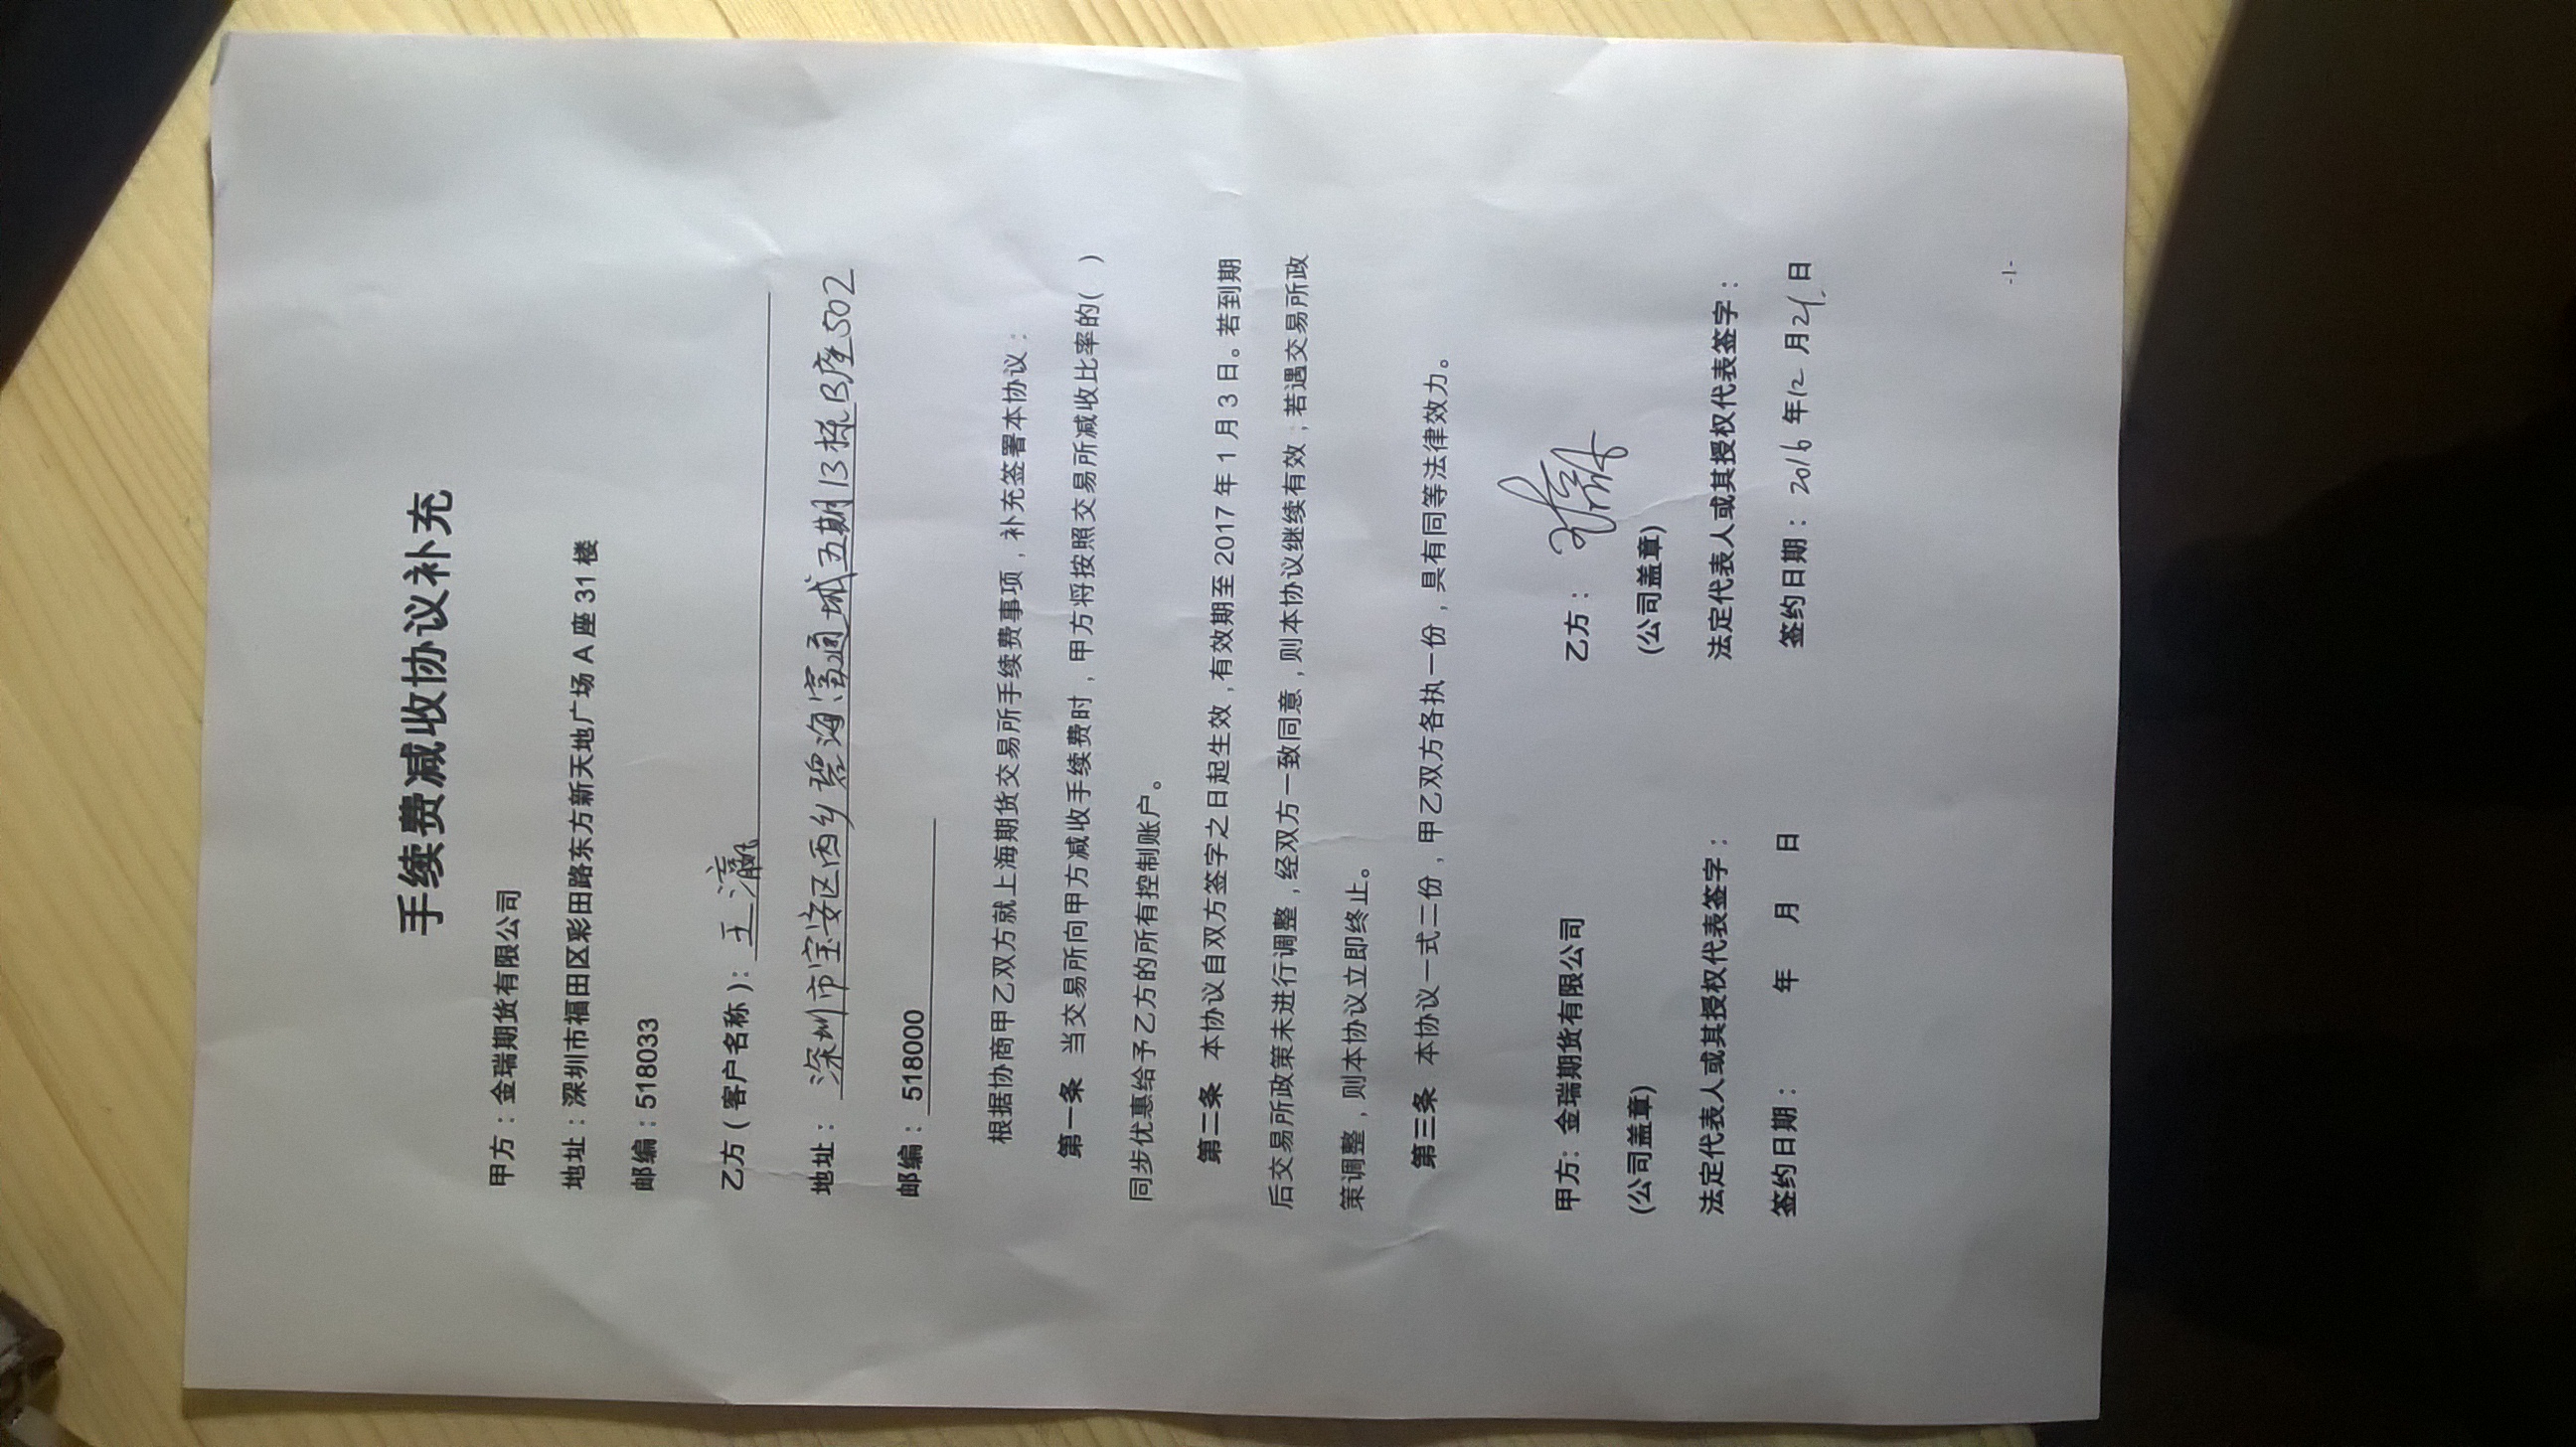 手续费减收协议补充
甲方：金瑞期货有限公司
地址：深圳市福田区彩田路东方新天地广场 A 座 31 楼
邮编：518033
乙方（客户名称）：王瀛
地址：深圳市宝安区西乡碧海富通城五期13栋B座502
邮编：518000
根据协商甲乙双方就上海期货交易所手续费事项，补充签署本协议：
第一条 当交易所向甲方减收手续费时，甲方将按照交易所减收比率的( )
同步优惠给予乙方的所有控制账户。
第二条 本协议自双方签字之日起生效，有效期至 2017 年 1 月 3 日。若到期
后交易所政策未进行调整，经双方一致同意，则本协议继续有效；若遇交易所政
策调整，则本协议立即终止。
第三条 本协议一式二份，甲乙双方各执一份，具有同等法律效力。
甲方：金瑞期货有限公司 乙方：
(公司盖章) (公司盖章)
法定代表人或其授权代表签字： 法定代表人或其授权代表签字：
签约日期： 年 月 日 签约日期：2016 年 12 月 21 日
-1-